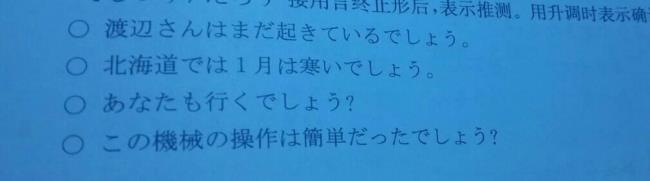 接用言终止形后,表示推测。用升调时表示确
○ 渡辺さんはまだ起きているでしょう。
○ 北海道では１月は寒いでしょう。
○ あなたも行くでしょう?
○ この機械の操作は簡単だったでしょう?